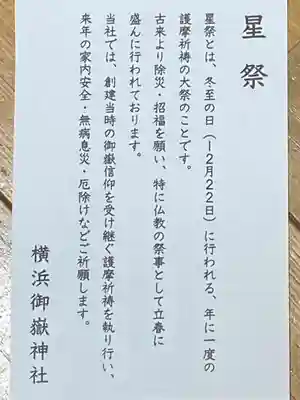 星祭
星祭とは、冬至の日（12月22日）に行われる、年に一度の
護摩祈祷の大祭のことです。
古来より除災・招福を願い、特に仏教の祭事として立春に
盛んに行われております。
当社では、創建当時の御嶽信仰を受け継ぐ護摩祈祷を執り行い、
来年の家内安全・無病息災・厄除けなどご祈願します。
横浜御嶽神社